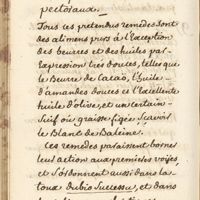 pectoraux._
Tous ces pretendus remedes sont
des alimens purs à l'Exception
des beurres et des huiles par
Expression tres douces, telles que
le Beurre de Cacao, l'huile
d'amandes douces et l'Excellente
huile d'olive, et un certain
Suif ou graisse figée Scavoir
le Blanc de Baleine.
Ces remedes paraissent borner
leur action aux premieres voyes,
et s'ordonnent aussi dans la
toux dubio Successu, et dans